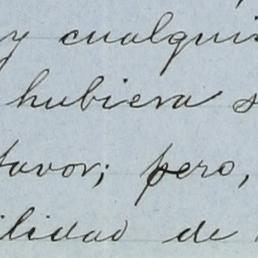 y cualqui
hubiera s
favor; pero,
ilidad de